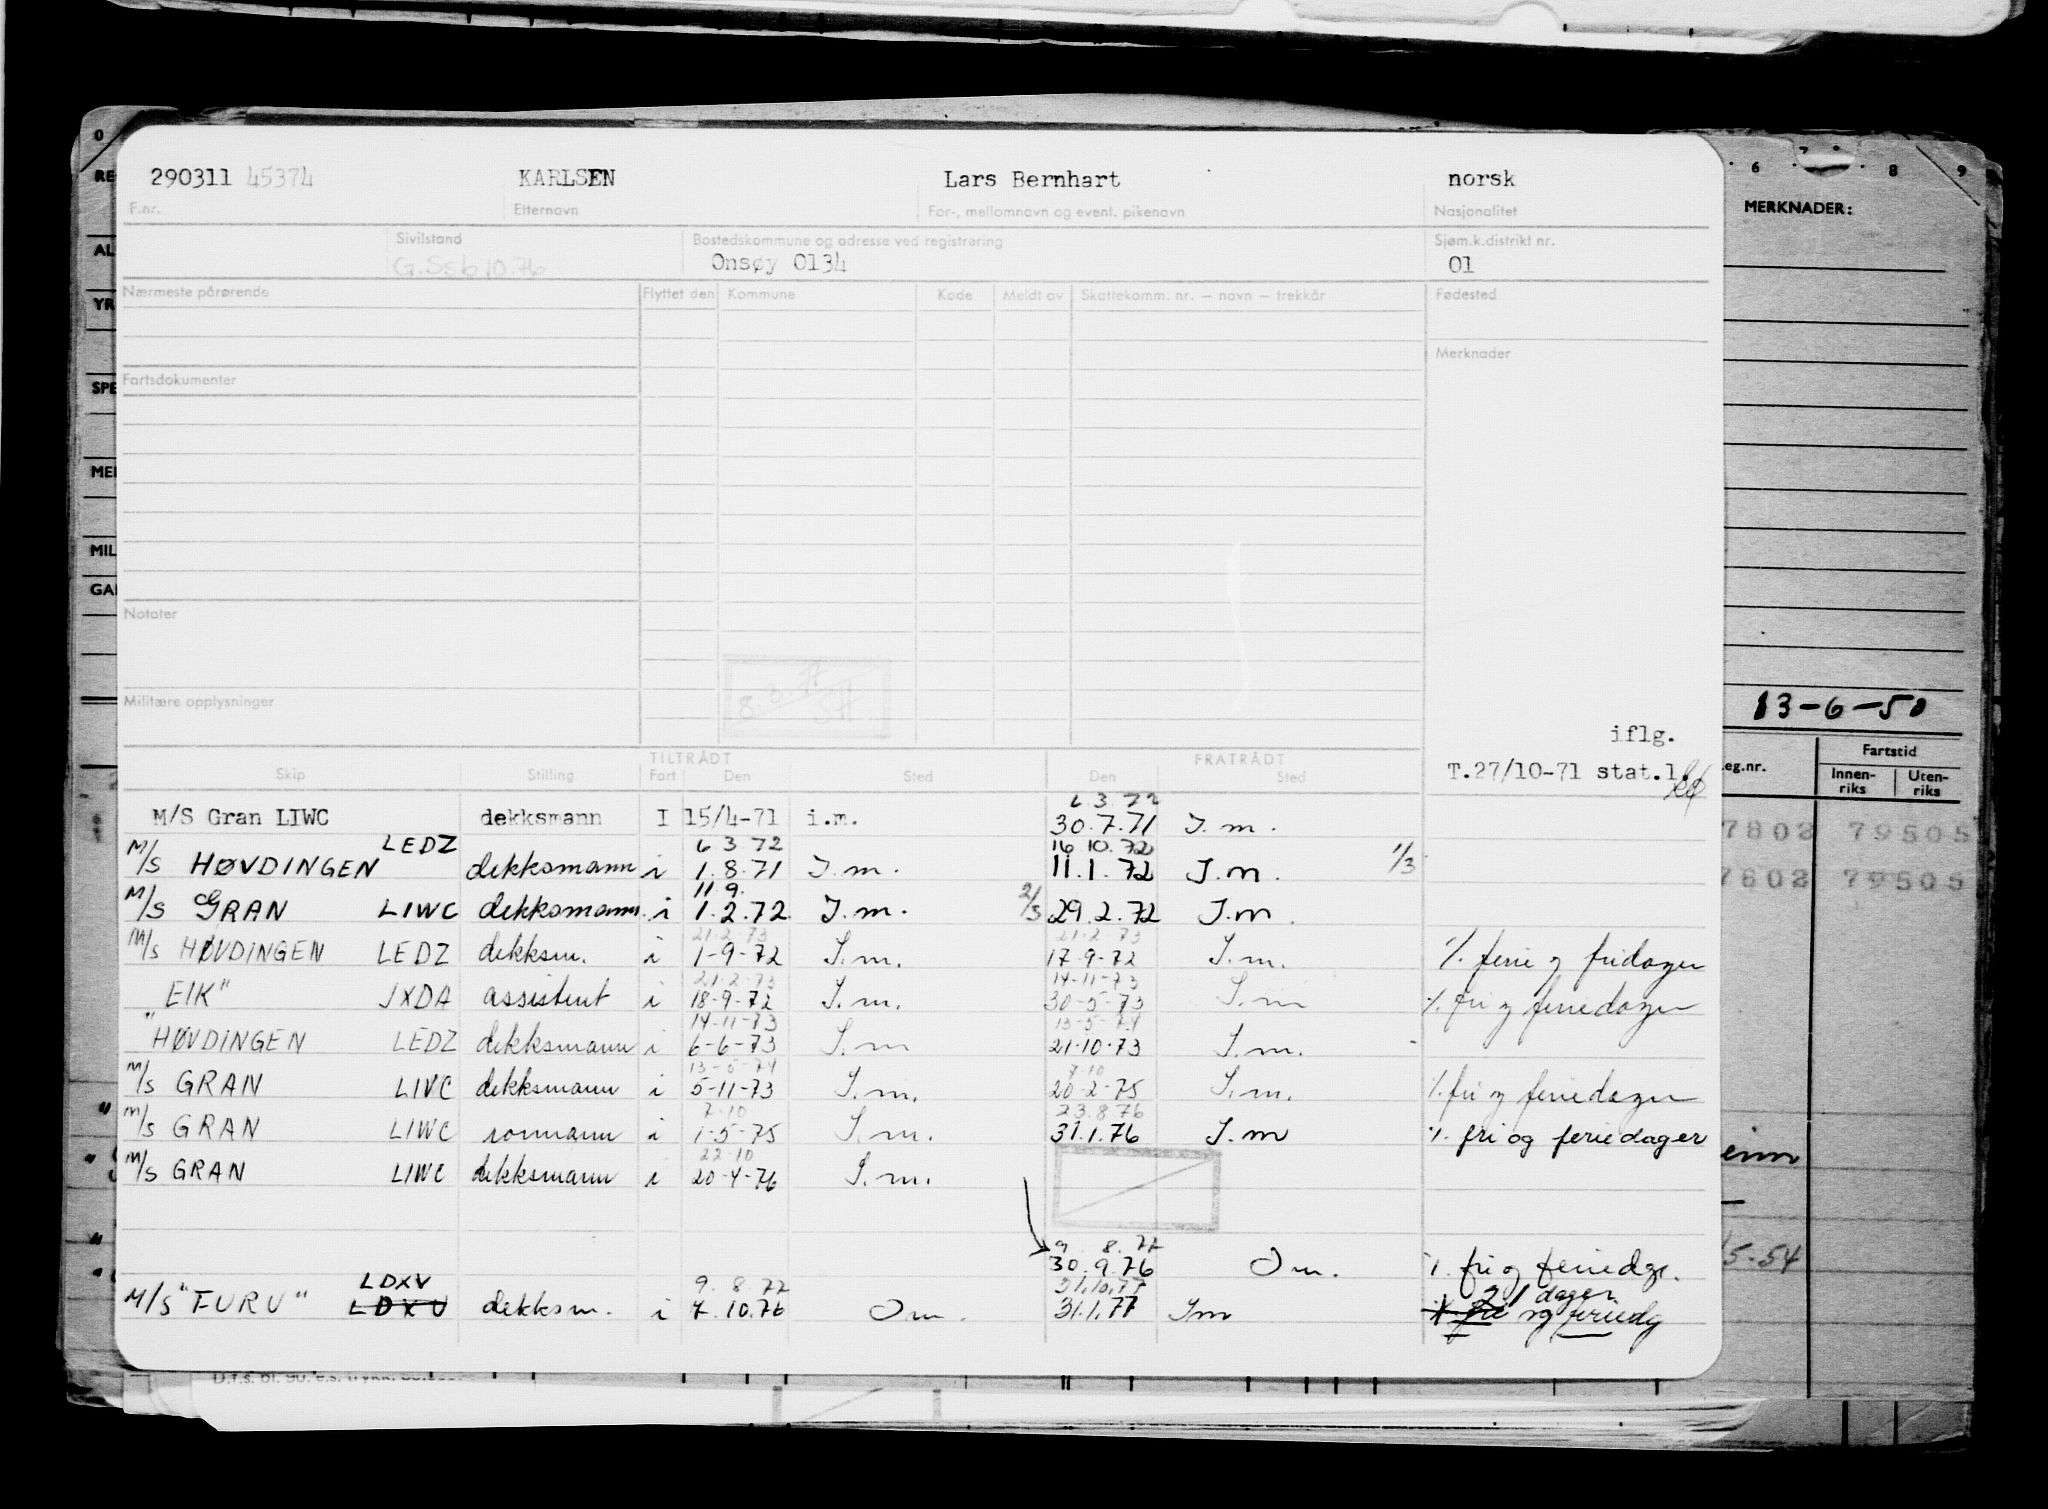 0 6 7 8 9
RE MERKNADER:
290311 45374 KARLSEN Lars Bernhart norsk
F.nr. Etternavn For-, mellomnavn og event. pikenavn Nasjonalitet
AL Sivilstand Bostedskommune og adresse ved registrering Sjøm.k.distrikt nr.
G.Ssb 10.76 Onsøy 0134 01
YR Nærmeste pårørende Flyttet den Kommune Kode Meldt av Skattekomm. nr. — navn — trekkår Fødested
Merknader
SPE Fartsdokumenter
MEI
MIL
GAI
Notater
8.3.77
Militære opplysninger
13-6-50
iflg.
T.27/10-71 stat.l.
TILTRÅDT FRATRÅDT
Skip Stilling Fart Den Sted Den Sted
eg.nr. Fartstid
Innen-riks Uten-riks
6.3.72
M/S Gran LIWC dekksmann I 15/4-71 i.m. 30.7.71 I.m. 7802 79505
LEDZ 6 3 72 16 10.72
M/S HØVDINGEN dekksmann i 1.8.71 I.m. 11.1.72 I.m. 1/3
7802 79505
11 9.
M/S GRAN LIWC dekksmann i 1.2.72. I.m. 2/3 29.2.72 I.m.
21-2-73 21-2-73
M/S HØVDINGEN LEDZ dekksm. i 1-9-72 I.m. 17-9-72 I.m. %. ferie og fridager
21-2-73 14-11-73
"EIK" JXDA assistent i 18-9-72 I.m. 30-5-73 I.m %. fri og feriedager
14-11-73 13-5-74
"HØVDINGEN LEDZ dekksmann i 6-6-73 I.m 21-10-73 I.m.
13-5-74 8-10
M/S GRAN LIWC dekksmann i 5-11-73 I.m. 20-2-75 I.m. %. fri og feriedager
7-10 23.8.76
M/S GRAN LIWC rormann i 1-5-75 I.m. 31.1.76 I.m %. fri og feriedager
22-10
M/S GRAN LIWC dekksmann i 20-4-76 I.m.
5-54
9. 8. 77
30.9.76 Om. %. fri og feriedgr.
LDXV 9. 8. 77 31.10.77 21 dager
M/S "FURU" LDXU dekksm. i 7.10.76 Om. 31.1.77 Im %. fri og feriedg